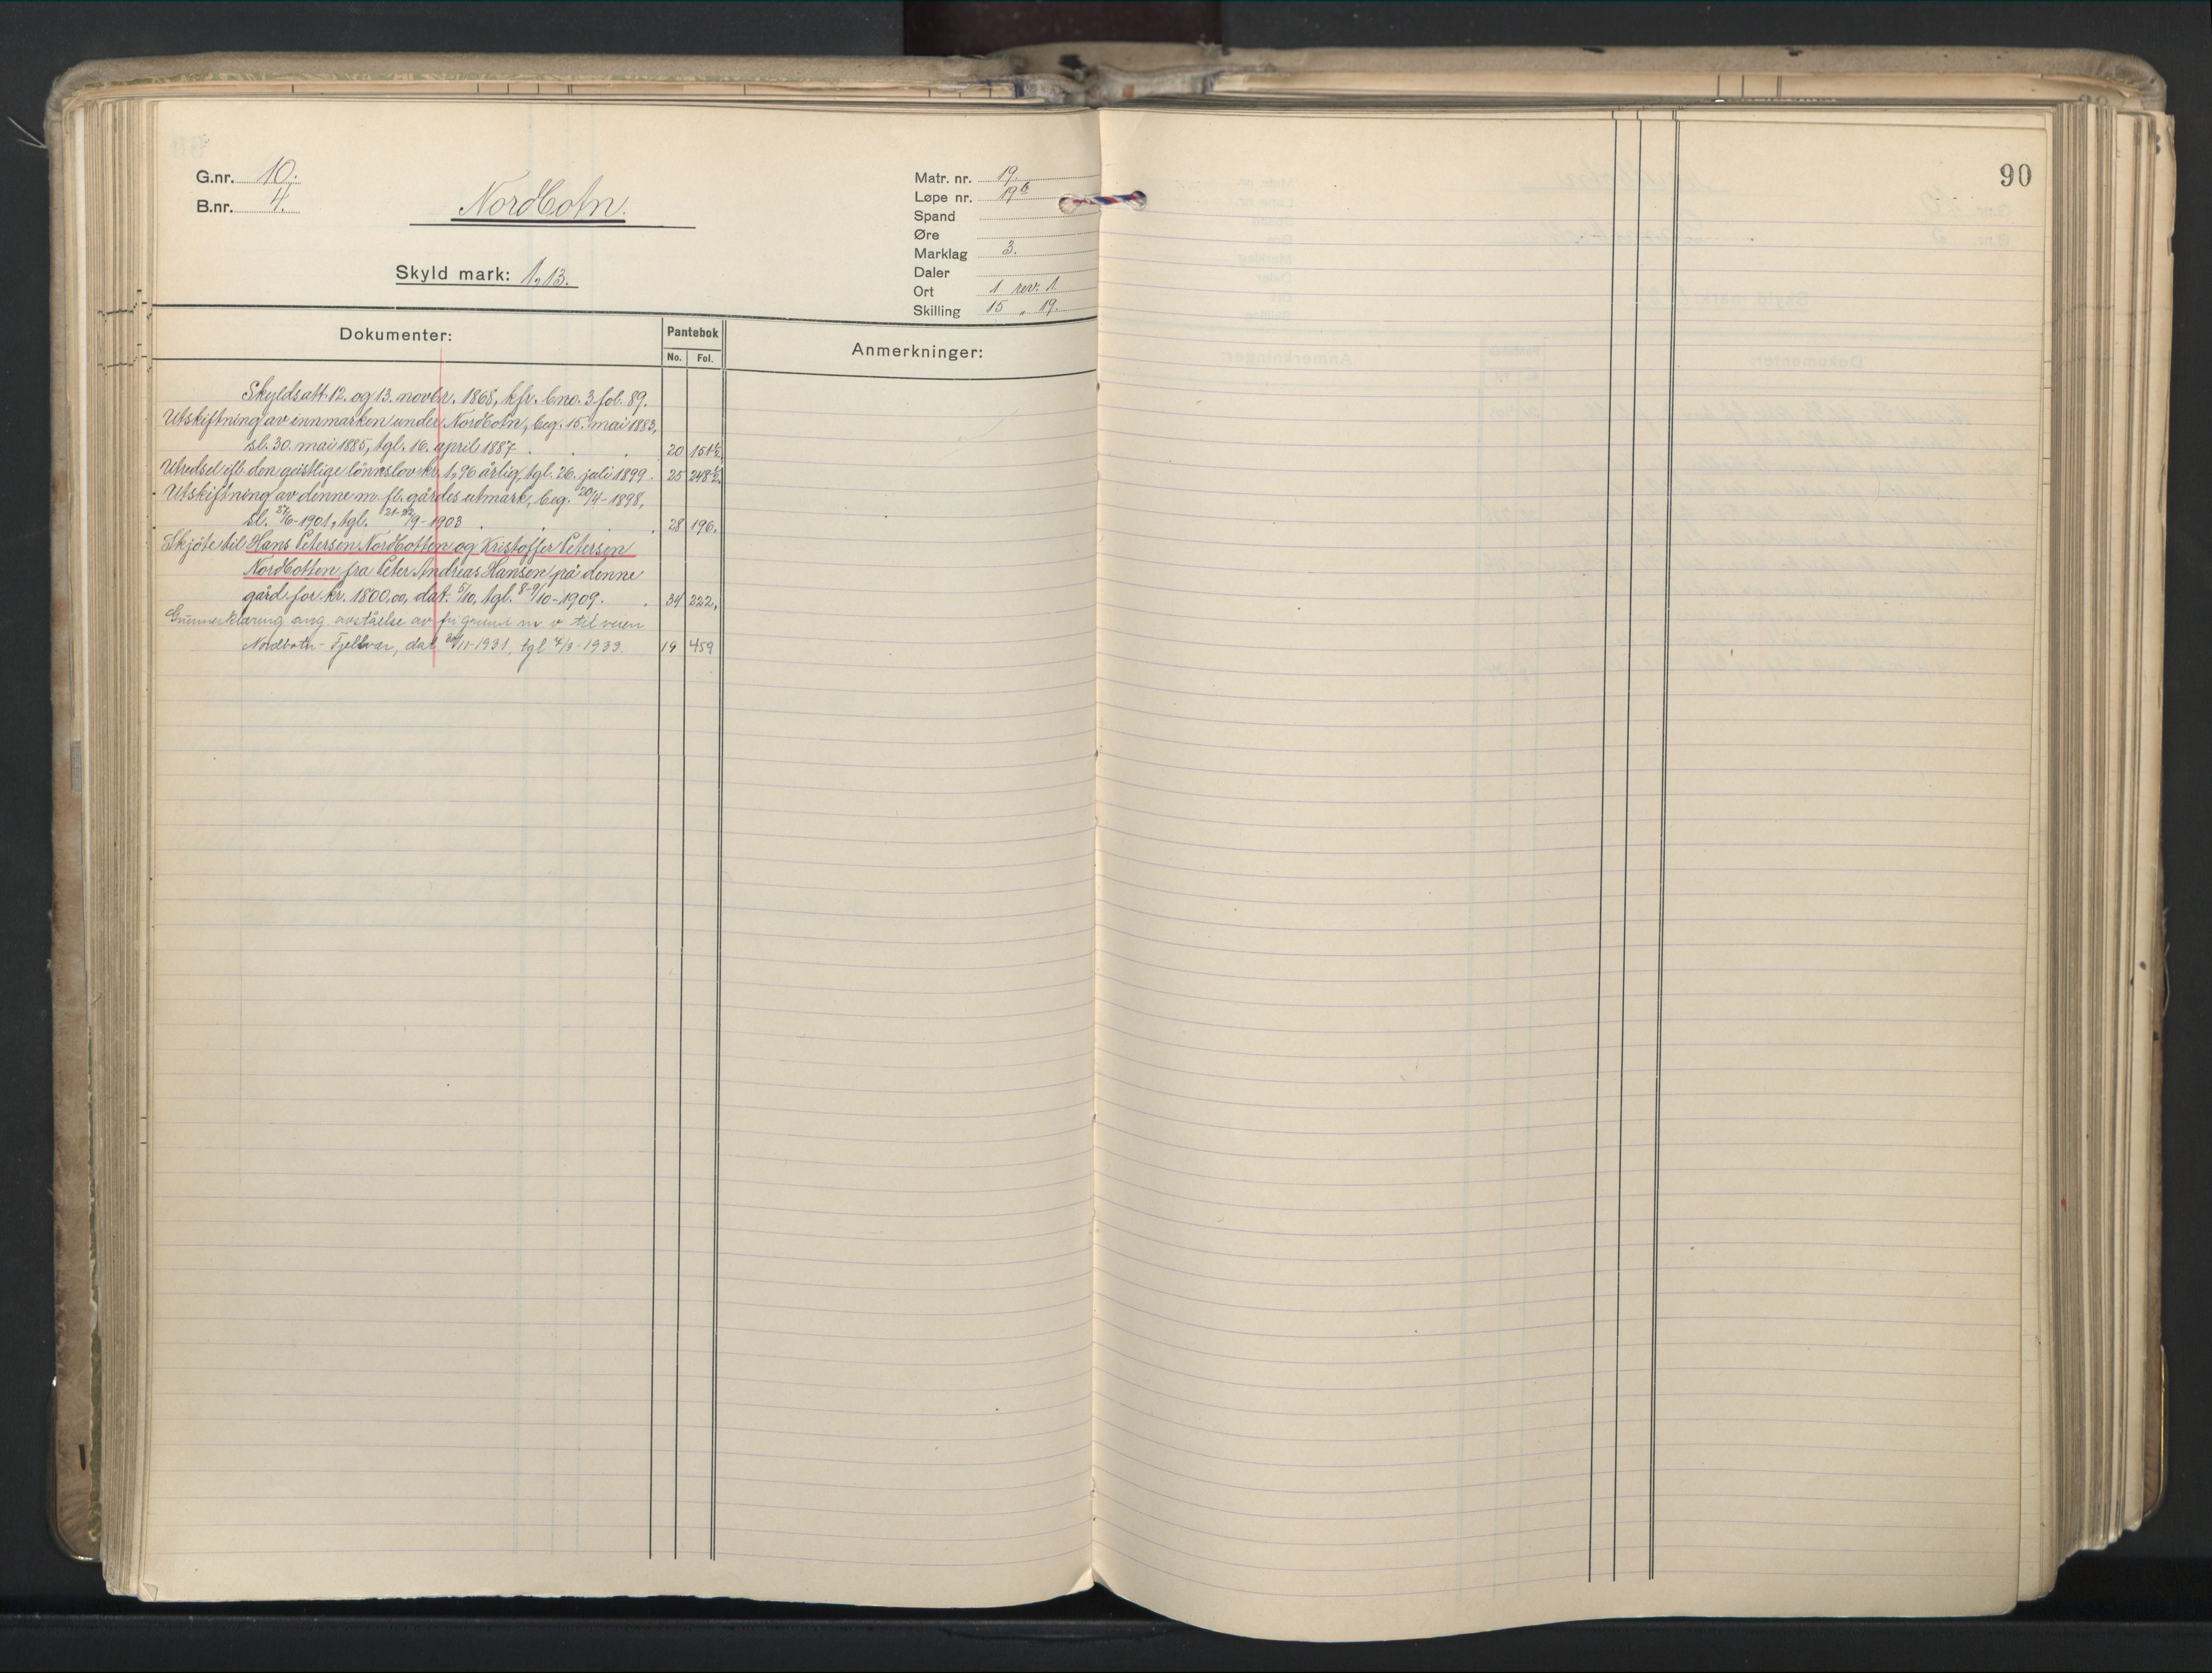 90
G.nr. 10.
B.nr. 4.
Nordbotn.
Skyld mark: 1,13.
Matr. nr. 19.
Løpe nr. 19b
Spand
Øre
Marklag 3.
Daler
Ort 1 rev. 1.
Skilling 15 „ 19.
Dokumenter:
Pantebok
No. Fol.
Anmerkninger:
Skyldsatt 12. og 13. novbr. 1868, kfr. bno. 3 fol. 89.
Utskiftning av innmarken under Nordbotn, beg. 15. mai 1883,
sl. 30. mai 1885, tgl. 16. april 1887 20 151½
Utredsel eft. den geistlige lönnslov kr. 1,96 årlig, tgl. 26. juli 1899. 25 248½
Utskiftning av denne m. fl. gårdes utmark, beg. 20/4-1898,
sl. 27/6-1901, tgl. 21-22/9-1903 28 196.
Skjöte til Hans Petersen Nordbotten og Kristoffer Petersen
Nordbotten fra Peter Andreas Hansen på denne
gård for kr. 1800,00, dat. 5/10, tgl. 8-9/10-1909. 34 222,
ang. avståelse av fri grunn m v til veien
Nordbotn - Fjellvær, dat. 20/11-1931, tgl 4/3-1933. 19 459